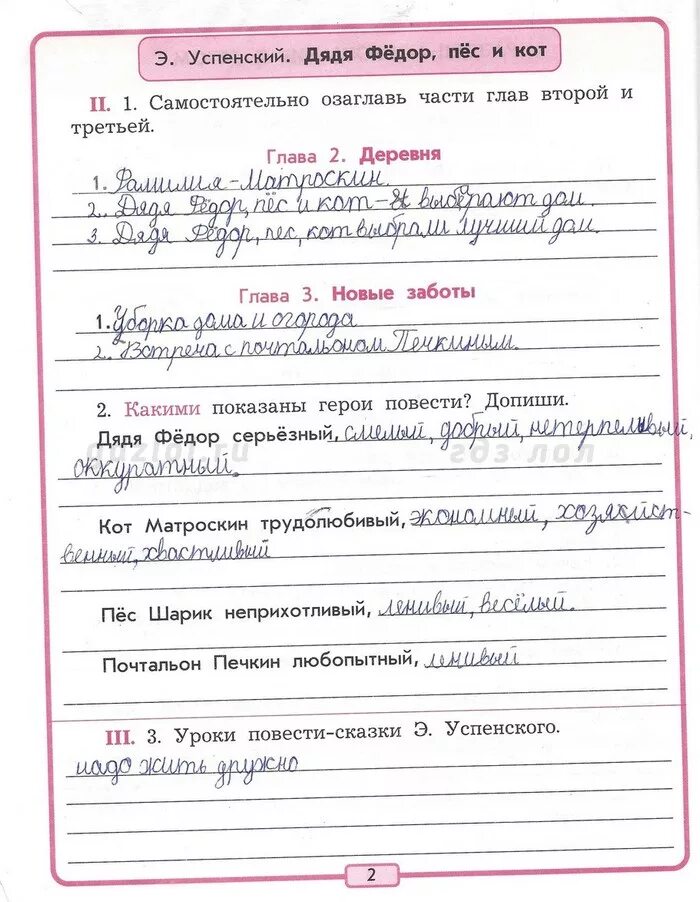 Э. Успенский. Дядя Фёдор, пёс и кот
II. 1. Самостоятельно озаглавь части глав второй и
третьей.
Глава 2. Деревня
1. Фамилия - Матроскин.
2. Дядя Фёдор, пёс и кот - выбирают дом.
3. Дядя Фёдор, пес, кот выбрали лучший дом.
Глава 3. Новые заботы
1. Уборка дома и огорода
2. Встреча с почтальоном Печкиным.
2. Какими показаны герои повести? Допиши.
Дядя Фёдор серьёзный, смелый, добрый, нетерпеливый,
оккуратный.
гдз лол
Кот Матроскин трудолюбивый, экономный, хозяйст-
венный, хвастливый
Пёс Шарик неприхотливый, ленивый, весёлый.
Почтальон Печкин любопытный, ленивый
III. 3. Уроки повести-сказки Э. Успенского.
надо жить дружно
2